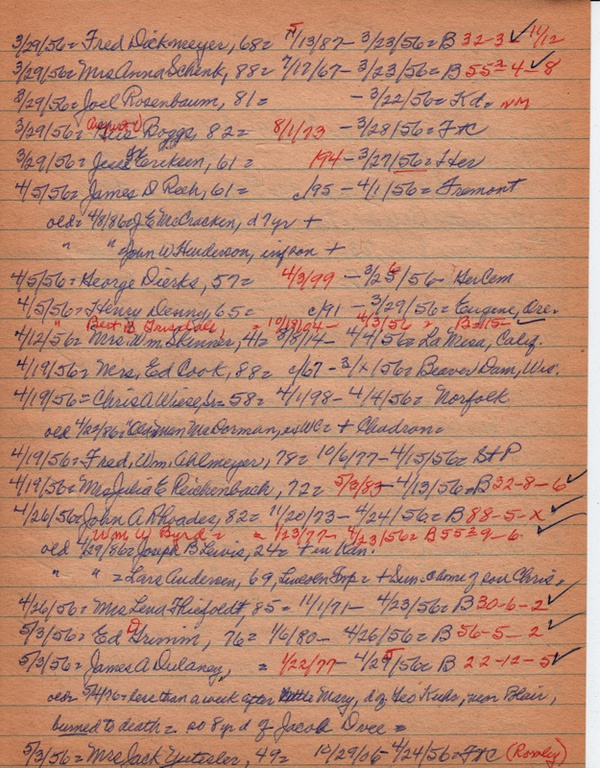 3/29/56= Fred Dickmeyer, 68= 5/13/87- 3/23/56= B 32-3 ✓ 11/12
3/29/56= Mrs Anna Schenk, 88= 7/17/67- 3/23/56= B 55²-4-8
3/29/56= Joel Rosenbaum, 81= - 3/22/56= Kd= NM
3/29/56= Boggs, 82= 8/1/73 - 3/28/56= F+C
3/29/56= Jess Ericksen, 61= /94- 3/27/56= Her
4/5/56= James D Reeh, 61= c/95 - 4/1/56= Fremont
old= 4/8/86= J E McCracken, d 7yr +
" " John W Henderson, inf son +
4/5/56= George Dierks, 57= 4/3/99 - 3/25/56- Her Cem
4/5/56= Henry Denny, 65= c/91 - 3/29/56= Eugene, Ore.
" Bert B Grisdale, = 10/18/04- 4/13/56= B=15- ✓
4/12/56= Mrs. Wm Skinner, 41= 8/8/14- 4/4/56= La Mesa, Calif.
4/19/56= Mrs, Ed Cook, 88= c/67- 3/x/56= Beaver Dam, Wis.
4/19/56= Chris A Wiese, Sr= 58= 4/1/98- 4/4/56= Norfolk
old 4/22/86= McDorman, + Chadron=
4/19/56= Fred, Wm Ahlmeyer, 78= 10/6/77- 4/15/56= St P
4/19/56= Mrs Julia E Reickenback, 72= 5/3/83- 4/13/56= B 32-8-6 ✓
4/26/56= John A Rhoades, 82= 11/20/73- 4/24/56= B 88-5-X ✓
Wm W Byrd= = 1/23/77- 4/23/56= B 55²-9-6. ✓
old 4/29/86= Joseph B Lewis, 24= + in Kan.
" " = Lars Andersen, 69, Lincoln Twp= + Sun. @ home of son Chris.
4/26/56= Mrs Lena Thiefoldt, 85= 11/1/71- 4/23/56= B 30-6-2 ✓
5/3/56= Ed D Grimm, 76= 1/6/80- 4/26/56= B 56-5-2 ✓
5/3/56= James A Dulaney, = 1/22/77- 4/25/56= B 22-12-5 ✓
old= 5/4/76= less than a week after little Mary, d of Geo Kuhr, near Blair,
burned to death= so 8 yr d of Jacob Dvee=
5/3/56= Mrs Jack Yutesler, 49= 10/29/06- 4/24/56= F+C (Rowley)